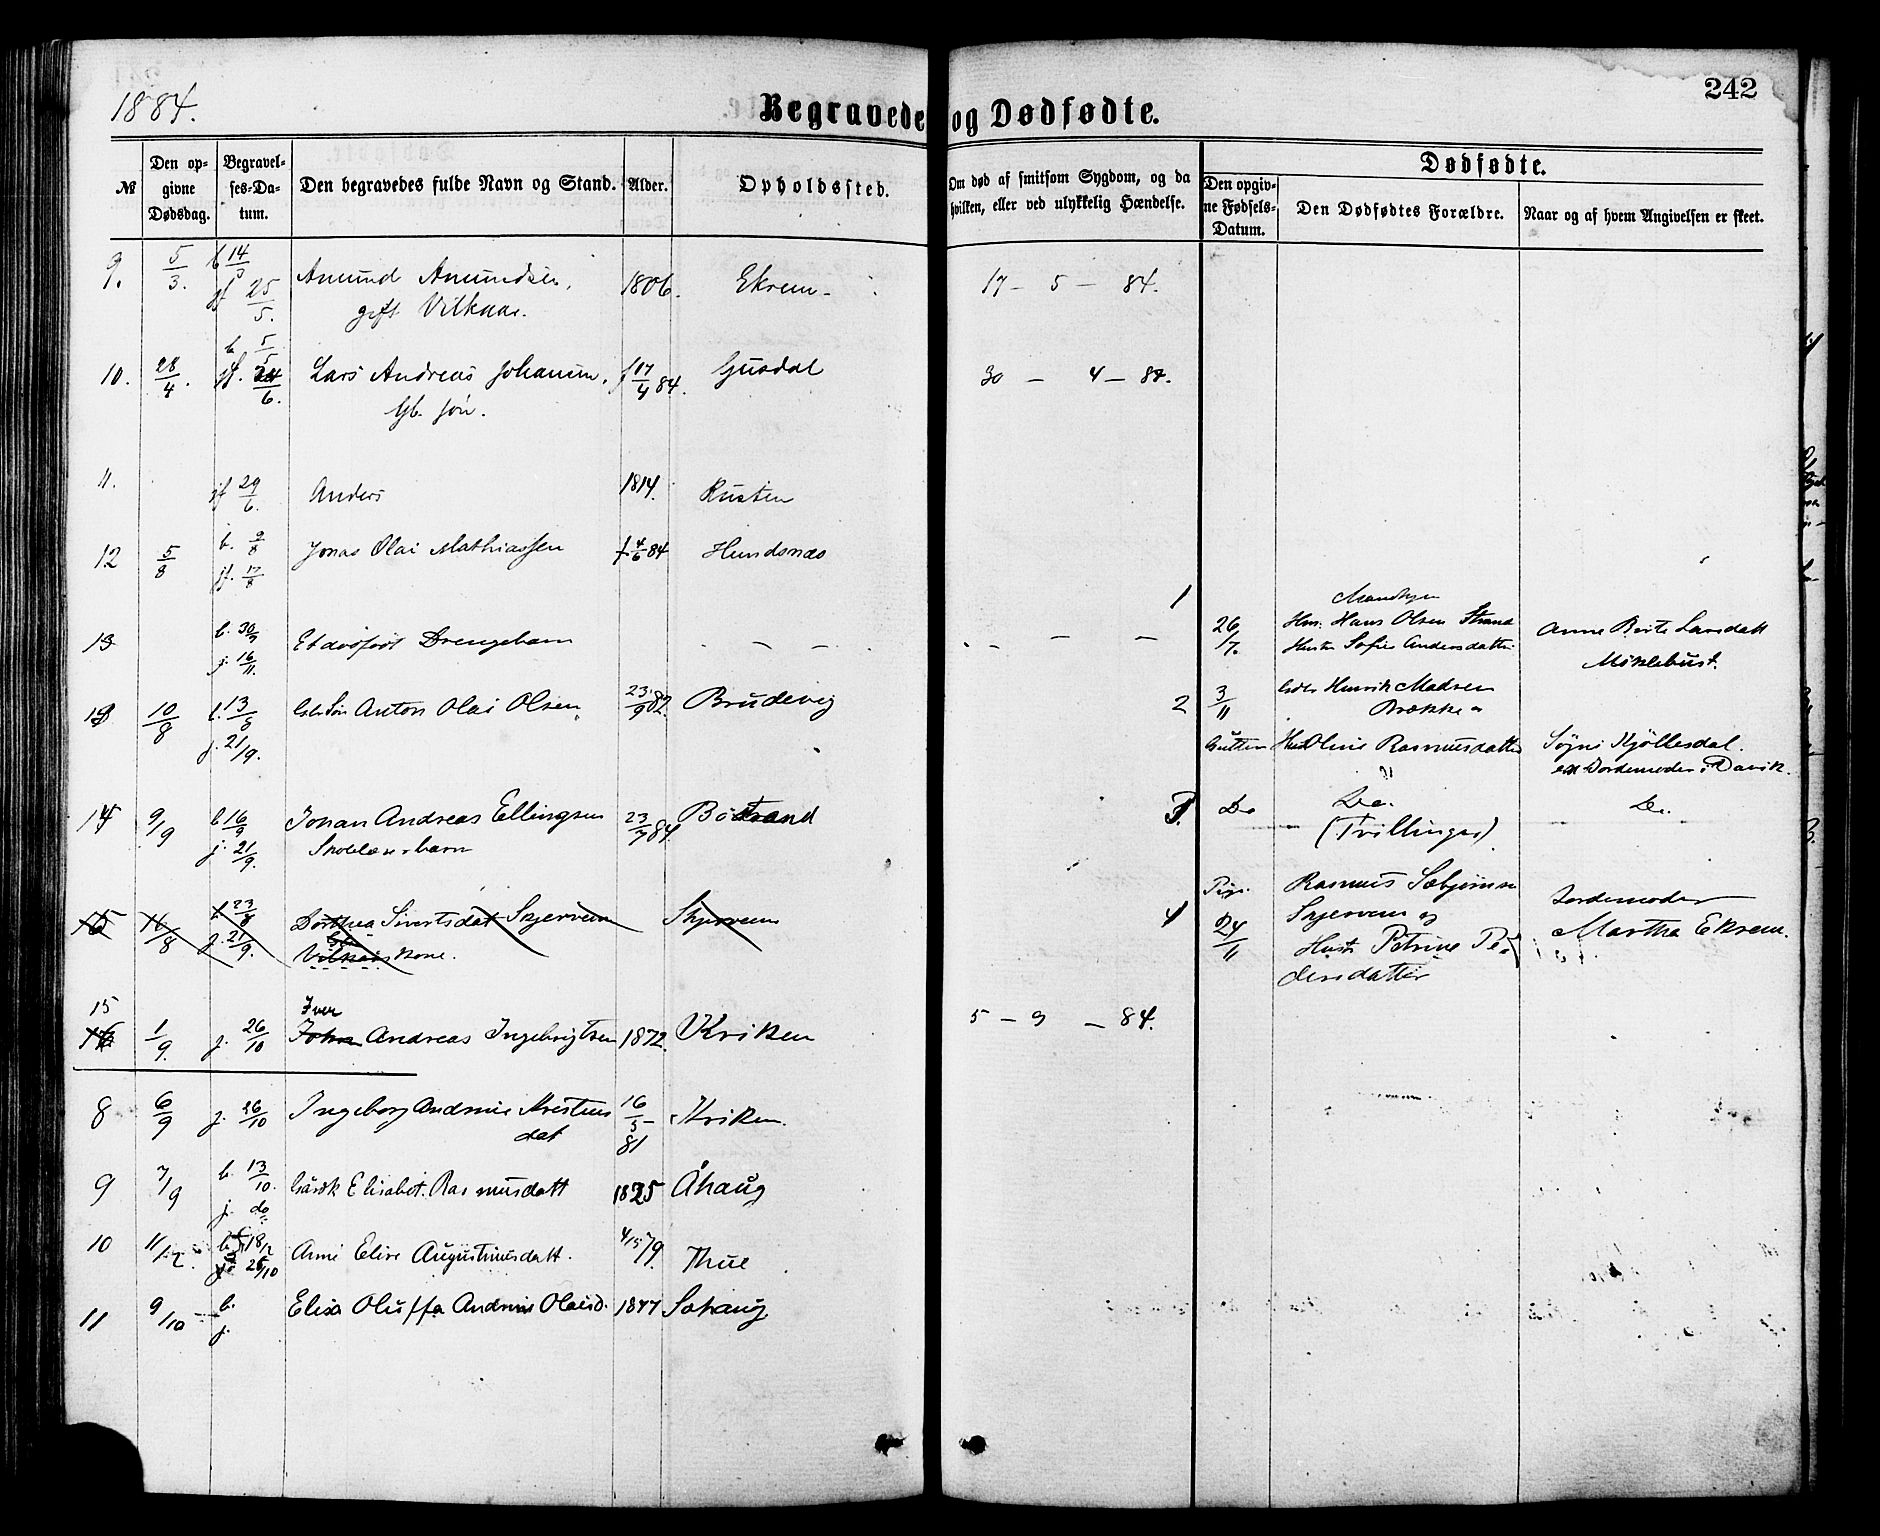 1884.
Begravede og Dødfødte.
242
№
Den opgivne Dødsdag.
Begravelses-Datum.
Den begravedes fulde Navn og Stand.
Alder.
Opholdssted.
Om død af smitsom Sygdom, og da hvilken, eller ved ulykkelig Hændelse.
Dødfødte.
Den opgivne Fødsels-Datum.
Den Dødfødtes Forældre.
Naar og af hvem Angivelsen er skeet.
9. 5/3. b 14/3 jf 25/5. Amund Amundsen, 1806. Ekrem 17 - 5 - 84.
gift Vilkaar.
10. 28/4. b. 5/5 jf. 24/6. Lars Andreas Johannn. f 17/4 84. Gusdal 30 - 4 - 84.
Gb. søn.
11. jf 29/6. Anders 1814. Rusten
12 5/8 b. 9/8 jf. 17/8 Jonas Olai Mathiassen f. 4/6 84 Hundsnæs
13 b. 30/9 j. 16/11. Et dødfødt Drengebarn - - -
13 10/8 b. 13/8 j. 21/9. Gbr Søn Anton Olai Olsen 23/9 82. Brudevig
14 9/9 b 16/9 j. 21/9. Johan Andreas Ellingsen 23/7 84. Bøstrand
Skolelærerbarn
15 16/8 b 23/8 j. 21/9. Dorthea Sivertsdat Skjerveim Skjerveim
Vilkaarskone.
15 1/9. j. 26/10 Iver
John Andreas Ingebrigtsen 1872. Kviken 5 - 9 - 84.
8 6/9 j. 26/10 Ingeborg Andrine Kristens 16/5 81 Kviken.
dat
9 7/9 b. 13/10. j. do Gårdk Elisabet Rasmusdatt 1825 Åhaug
10 11/12 b. 18/12 j. 26/10 Anne Elise Augustinusdatt. 4/5 79. Thue
11 9/10 b. j. Elisa Oluffa Andrine Olaisd. 1877 Sohaug
1 26/7. Mandkjøn
Hm. Hans Olsen Strand
Hustr Sofie Andersdatter
Anne Berte Larsdatt
Møklebust.
2 3/11 Gbr Henrik Madsen
Brække &
Gutten Hust Oline Rasmusdatter
Søgni Kjøllesdal.
ex Jordemoder i Davik.
3. Do Do.
(Tvillinger)
Do.
4 Pige. 24/11 Rasmus Sæbjørnsn
Skjerveim og
Hustr Petrine Pe-
dersdatter
Jordemoder
Martha Ekrem.